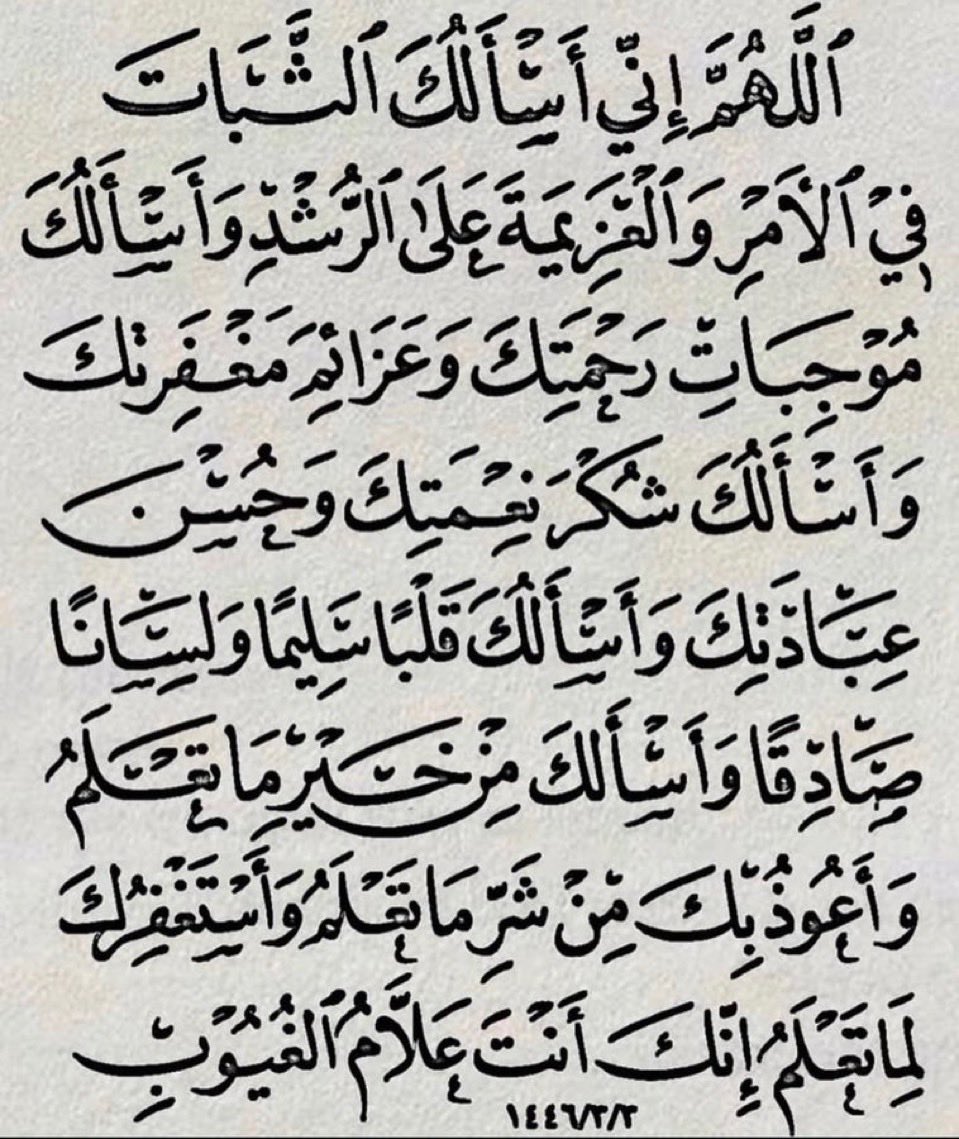 ٱللَّهُمَّ إِنِّي أَسْأَلُكَ ٱلثَّبَاتَ
فِيْ ٱلأَمْرِ وَٱلْعَزِيمَةَ عَلَى ٱلرُّشْدِ وَأَسْأَلُكَ
مُوْجِبَاتِ رَحْمَتِكَ وَعَزَائِمَ مَغْفِرَتِكَ
وَأَسْأَلُكَ شُكْرَ نِعْمَتِكَ وَحُسْنَ
عِبَادَتِكَ وَأَسْأَلُكَ قَلْبًا سَلِيمًا وَلِسَانًا
صَادِقًا وَأَسْأَلُكَ مِنْ خَيْرِ مَا تَعْلَمُ
وَأَعُوذُ بِكَ مِنْ شَرِّ مَا تَعْلَمُ وَأَسْتَغْفِرُكَ
لِمَا تَعْلَمُ إِنَّكَ أَنْتَ عَلَّامُ ٱلْغُيُوْبِ